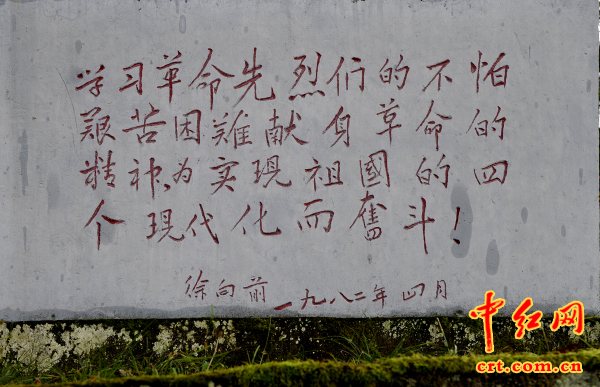 学习革命先烈们的不怕
艰苦困難献身革命的
精神,为实現祖國的四
个現代化而奮斗!
徐向前 一九八二年四月
中红网
crt.com.cn